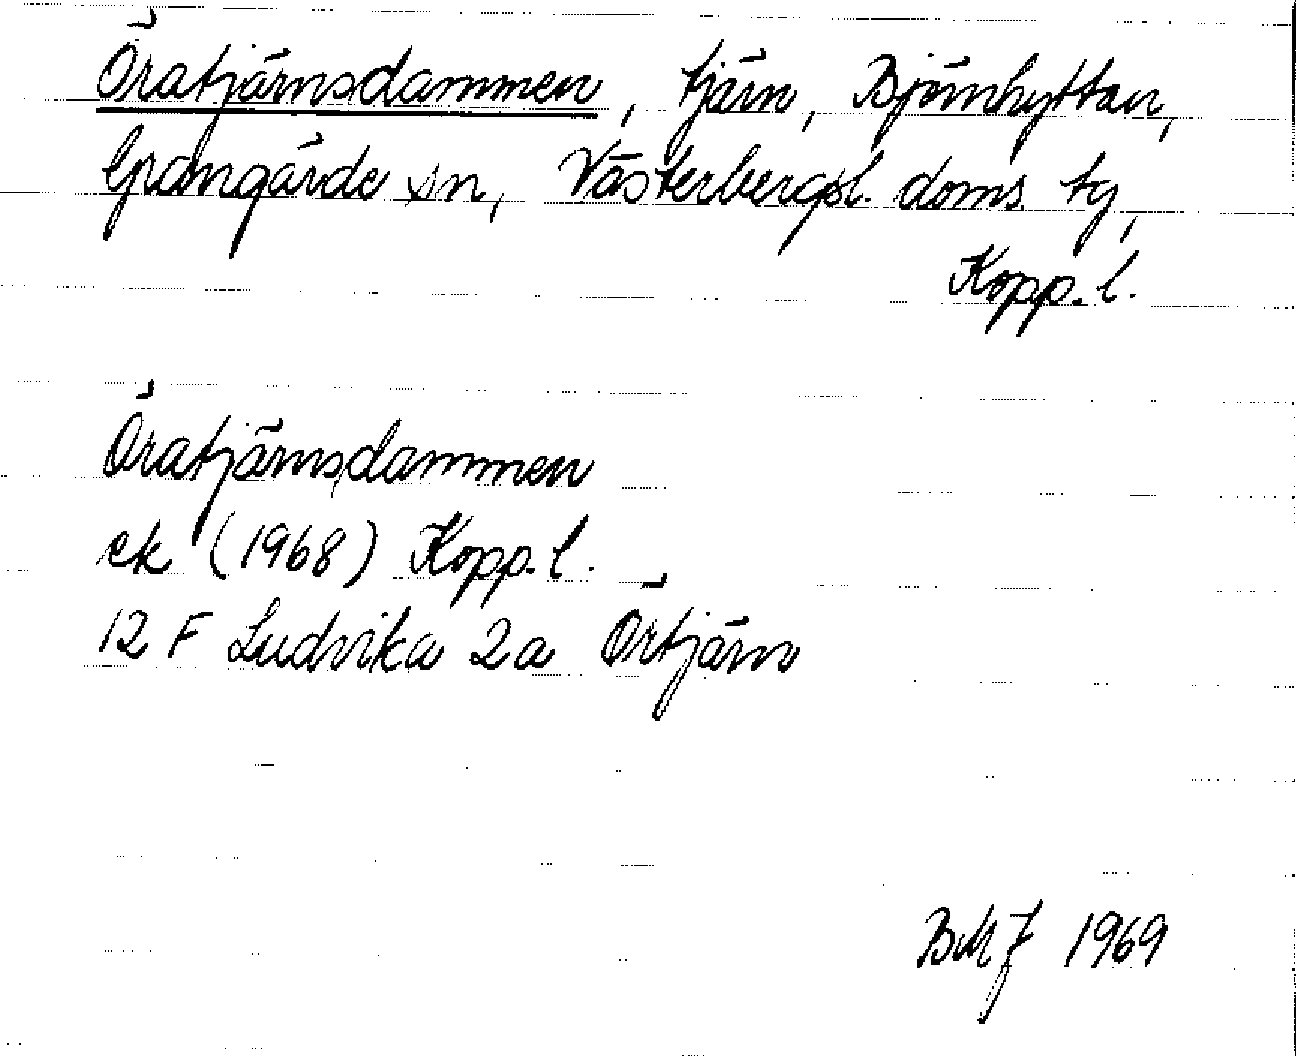 Öratjärnsdammen, tjärn, Björnhyttan,
Grangärde sn, Västerbergsl. doms. tg,
Kopp. l.
Öratjärnsdammen
ek (1968) Kopp. l.
12 F Ludvika 2a Örtjärn
BMJ 1969